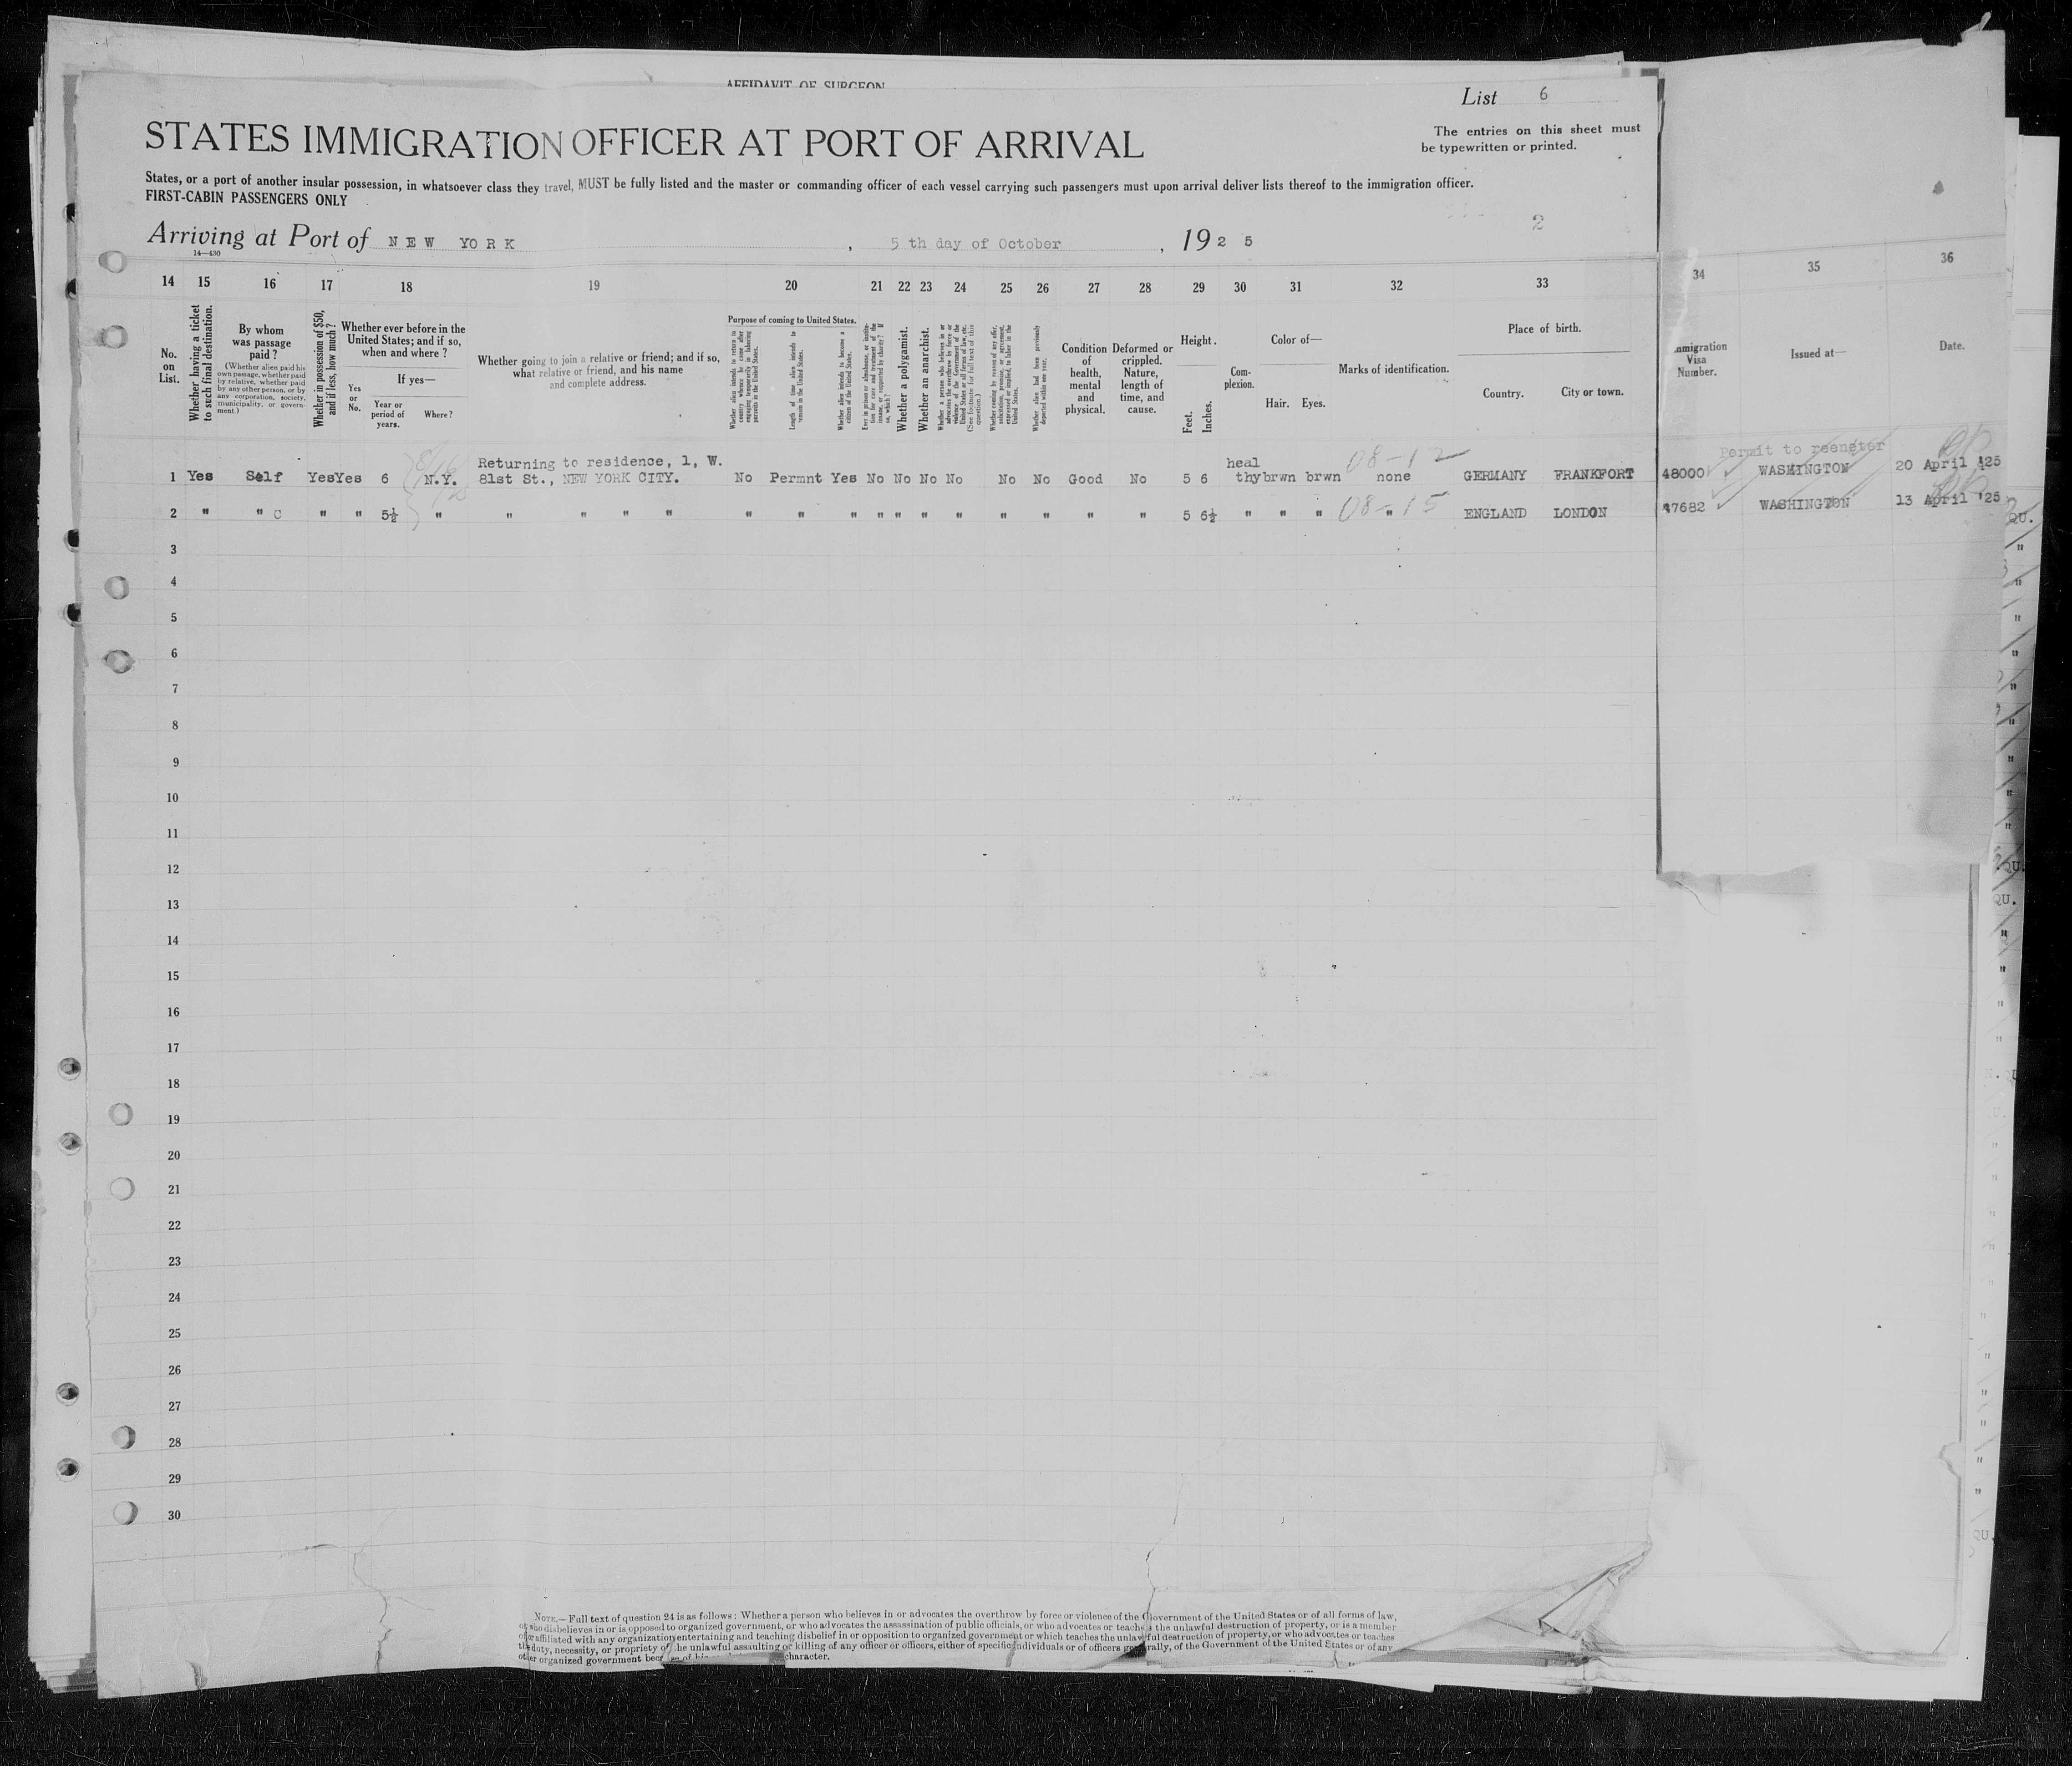 AFFIDAVIT OF SURGEON
List 6
The entries on this sheet must
be typewritten or printed.
STATES IMMIGRATION OFFICER AT PORT OF ARRIVAL
States, or a port of another insular possession, in whatsoever class they travel, MUST be fully listed and the master or commanding officer of each vessel carrying such passengers must upon arrival deliver lists thereof to the immigration officer.
FIRST-CABIN PASSENGERS ONLY
2
Arriving at Port of NEW YORK , 5 th day of October , 1925
14—430
14 15 16 17 18 19 20 21 22 23 24 25 26 27 28 29 30 31 32 33 34 35 36
No. on List.
Whether having a ticket to such final destination.
By whom was passage paid?
(Whether alien paid his own passage, whether paid by relative, whether paid by any other person, or by any corporation, society, municipality, or government.)
Whether in possession of $50, and if less, how much?
Whether ever before in the United States; and if so, when and where?
Yes or No.
If yes—
Year or period of years.
Where?
Whether going to join a relative or friend; and if so, what relative or friend, and his name and complete address.
Purpose of coming to United States.
Whether alien intends to return to country whence he came after engaging temporarily in laboring pursuits in the United States.
Length of time alien intends to remain in the United States.
Whether alien intends to become a citizen of the United States.
Ever in prison or almshouse, or institution for care and treatment of the insane, or supported by charity? If so, which?
Whether a polygamist.
Whether an anarchist.
Whether a person who believes in or advocates the overthrow by force or violence of the Government of the United States or all forms of law, etc. (See footnote for full text of this question.)
Whether coming by reason of any offer, solicitation, promise, or agreement, expressed or implied, to labor in the United States.
Whether alien had been previously deported within one year.
Condition of health, mental and physical.
Deformed or crippled. Nature, length of time, and cause.
Height.
Feet.
Inches.
Complexion.
Color of—
Hair. Eyes.
Marks of identification.
Place of birth.
Country. City or town.
Immigration Visa Number.
Issued at—
Date.
Permit to reenster
08-12
1 Yes Self Yes Yes 6 N.Y. Returning to residence, 1, W. 81st St., NEW YORK CITY. No Permnt Yes No No No No No No Good No 5 6 healthy brwn brwn none GERMANY FRANKFORT 48000 WASHINGTON 20 April '25
08-15
2 " " C " " 5½ " " " " " " " " " " " " " " " " 5 6½ " " " " ENGLAND LONDON 47682 WASHINGTON 13 April '25
QU.
3
4
5
6
7
8
9
10
11
12
QU.
13
QU.
14
15
16
17
18
19
20
21
22
23
24
25
26
27
28
29
30
NOTE.—Full text of question 24 is as follows: Whether a person who believes in or advocates the overthrow by force or violence of the Government of the United States or of all forms of law,
or who disbelieves in or is opposed to organized government, or who advocates the assassination of public officials, or who advocates or teaches the unlawful destruction of property, or is a member
of or affiliated with any organization entertaining and teaching disbelief in or opposition to organized government or which teaches the unlawful destruction of property, or who advocates or teaches
the duty, necessity, or propriety of the unlawful assaulting or killing of any officer or officers, either of specific individuals or of officers generally, of the Government of the United States or of any
other organized government because of his character.